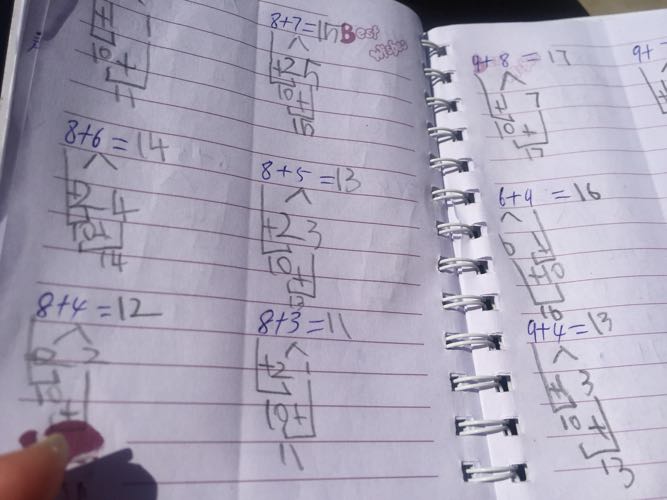 +
10 +
8+7=15 Best
wishes
+2 5
10 +
15
8+6=14
+2 4
10 +
14
8+5=13
+2 3
10 +
13
8+4=12
2
10 +
8+3=11
+2 1
10 +
11
9+8=17
+1 7
10 +
17
6+9=16
6
+10
16
9+4=13
+1 3
10 +
13
9+